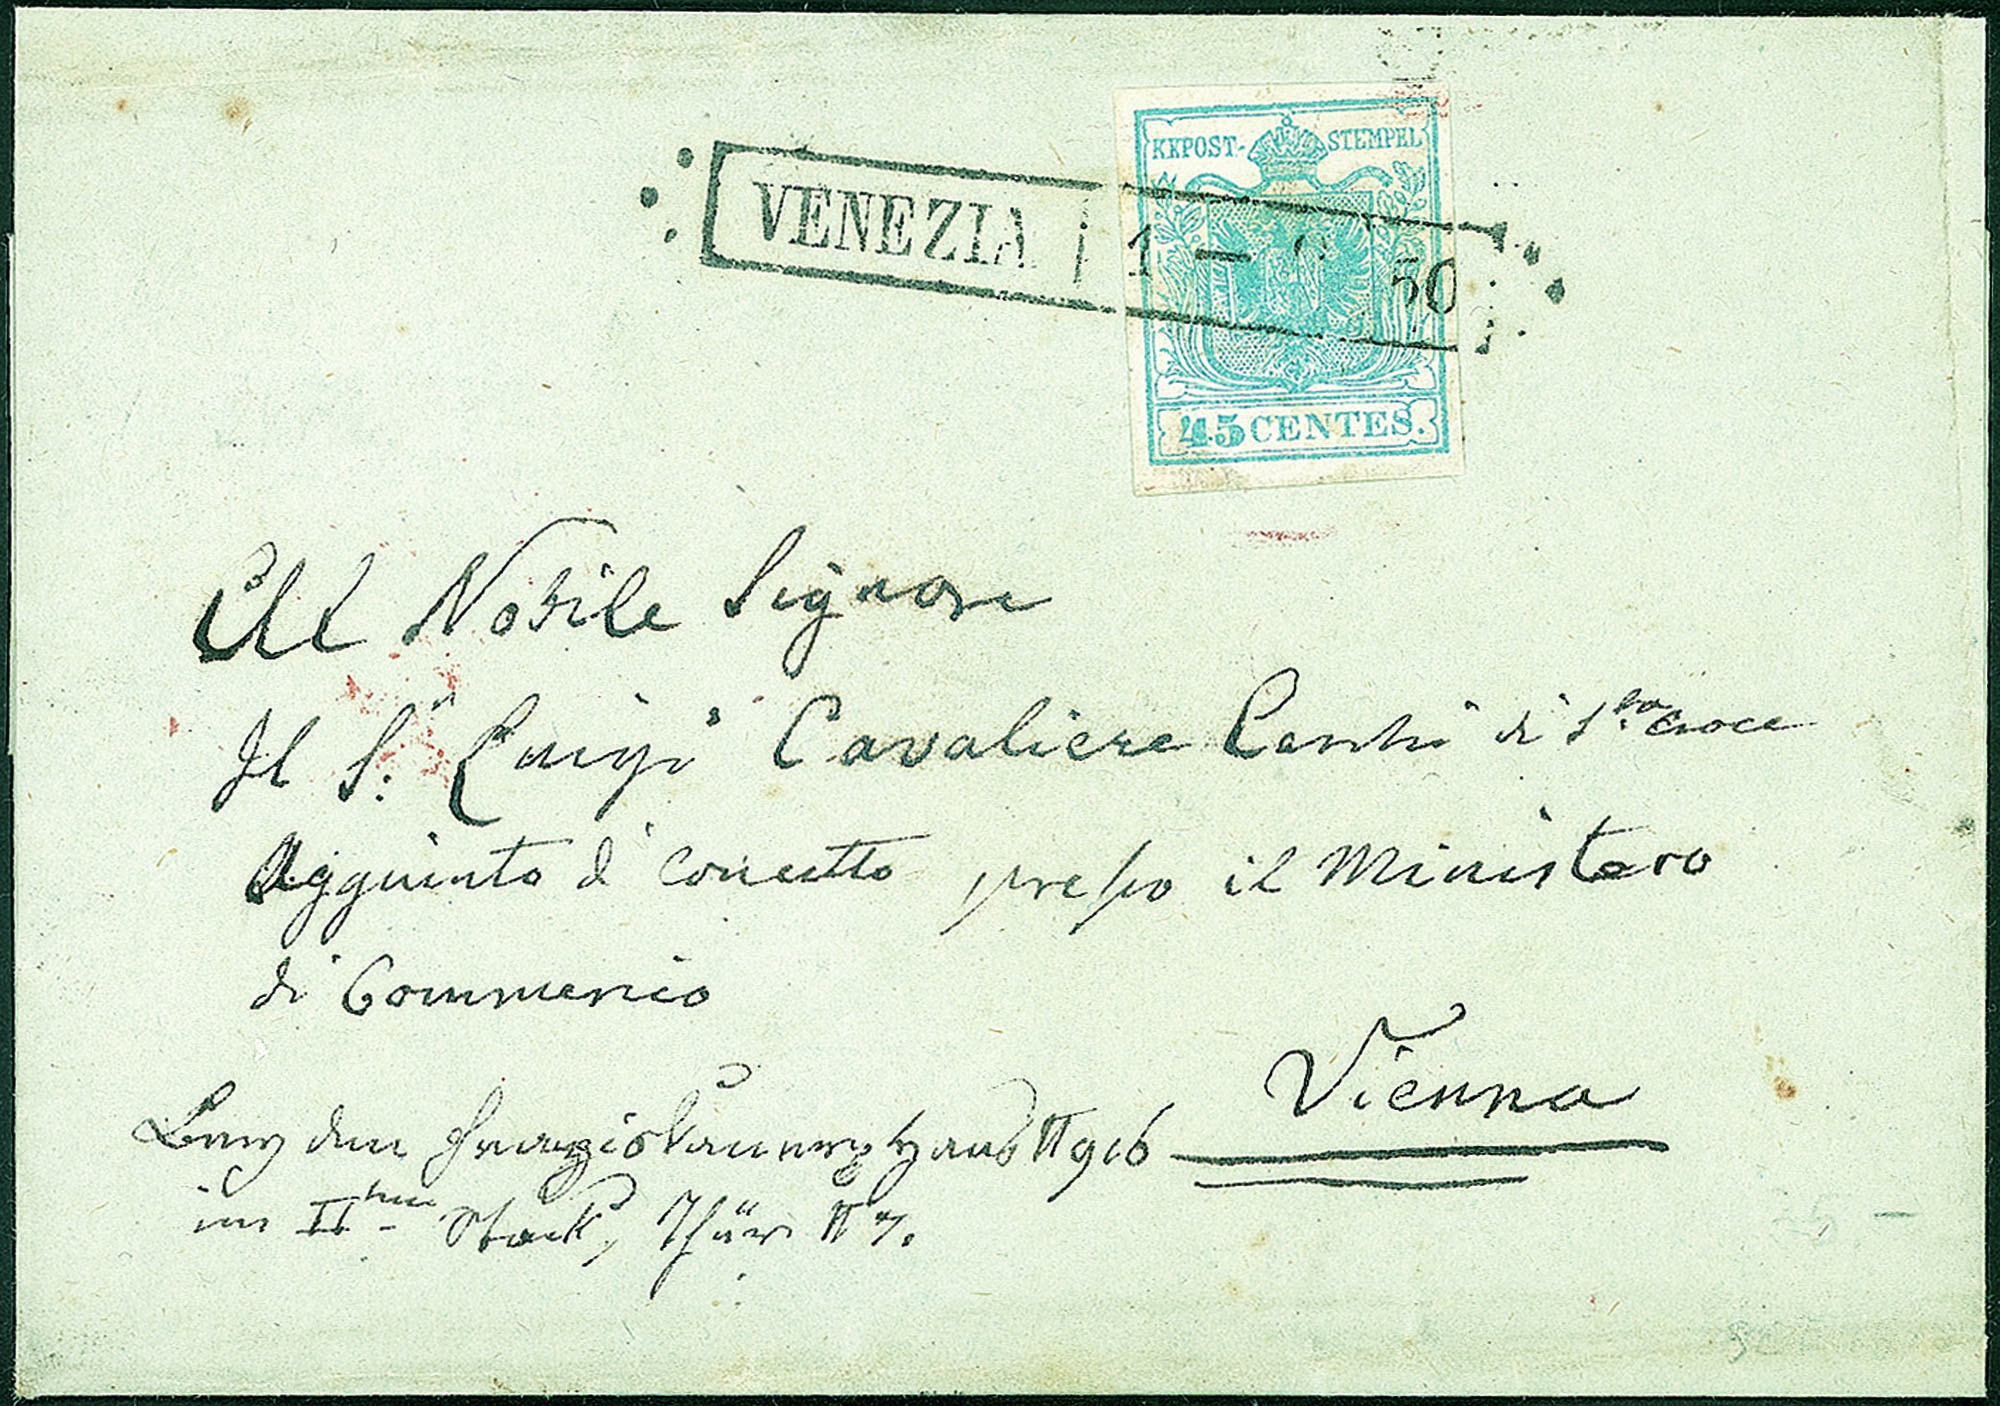 KKPOST-STEMPEL
VENEZIA 1 — 50
45 CENTES.
All Nobile Signore
Il S.r Luigi Cavaliere di S.ta Croce
Aggiunto di concetto presso il Ministero
di Commercio
Vienna
den Haus N 916
im II ten Stock, Thür N 7.